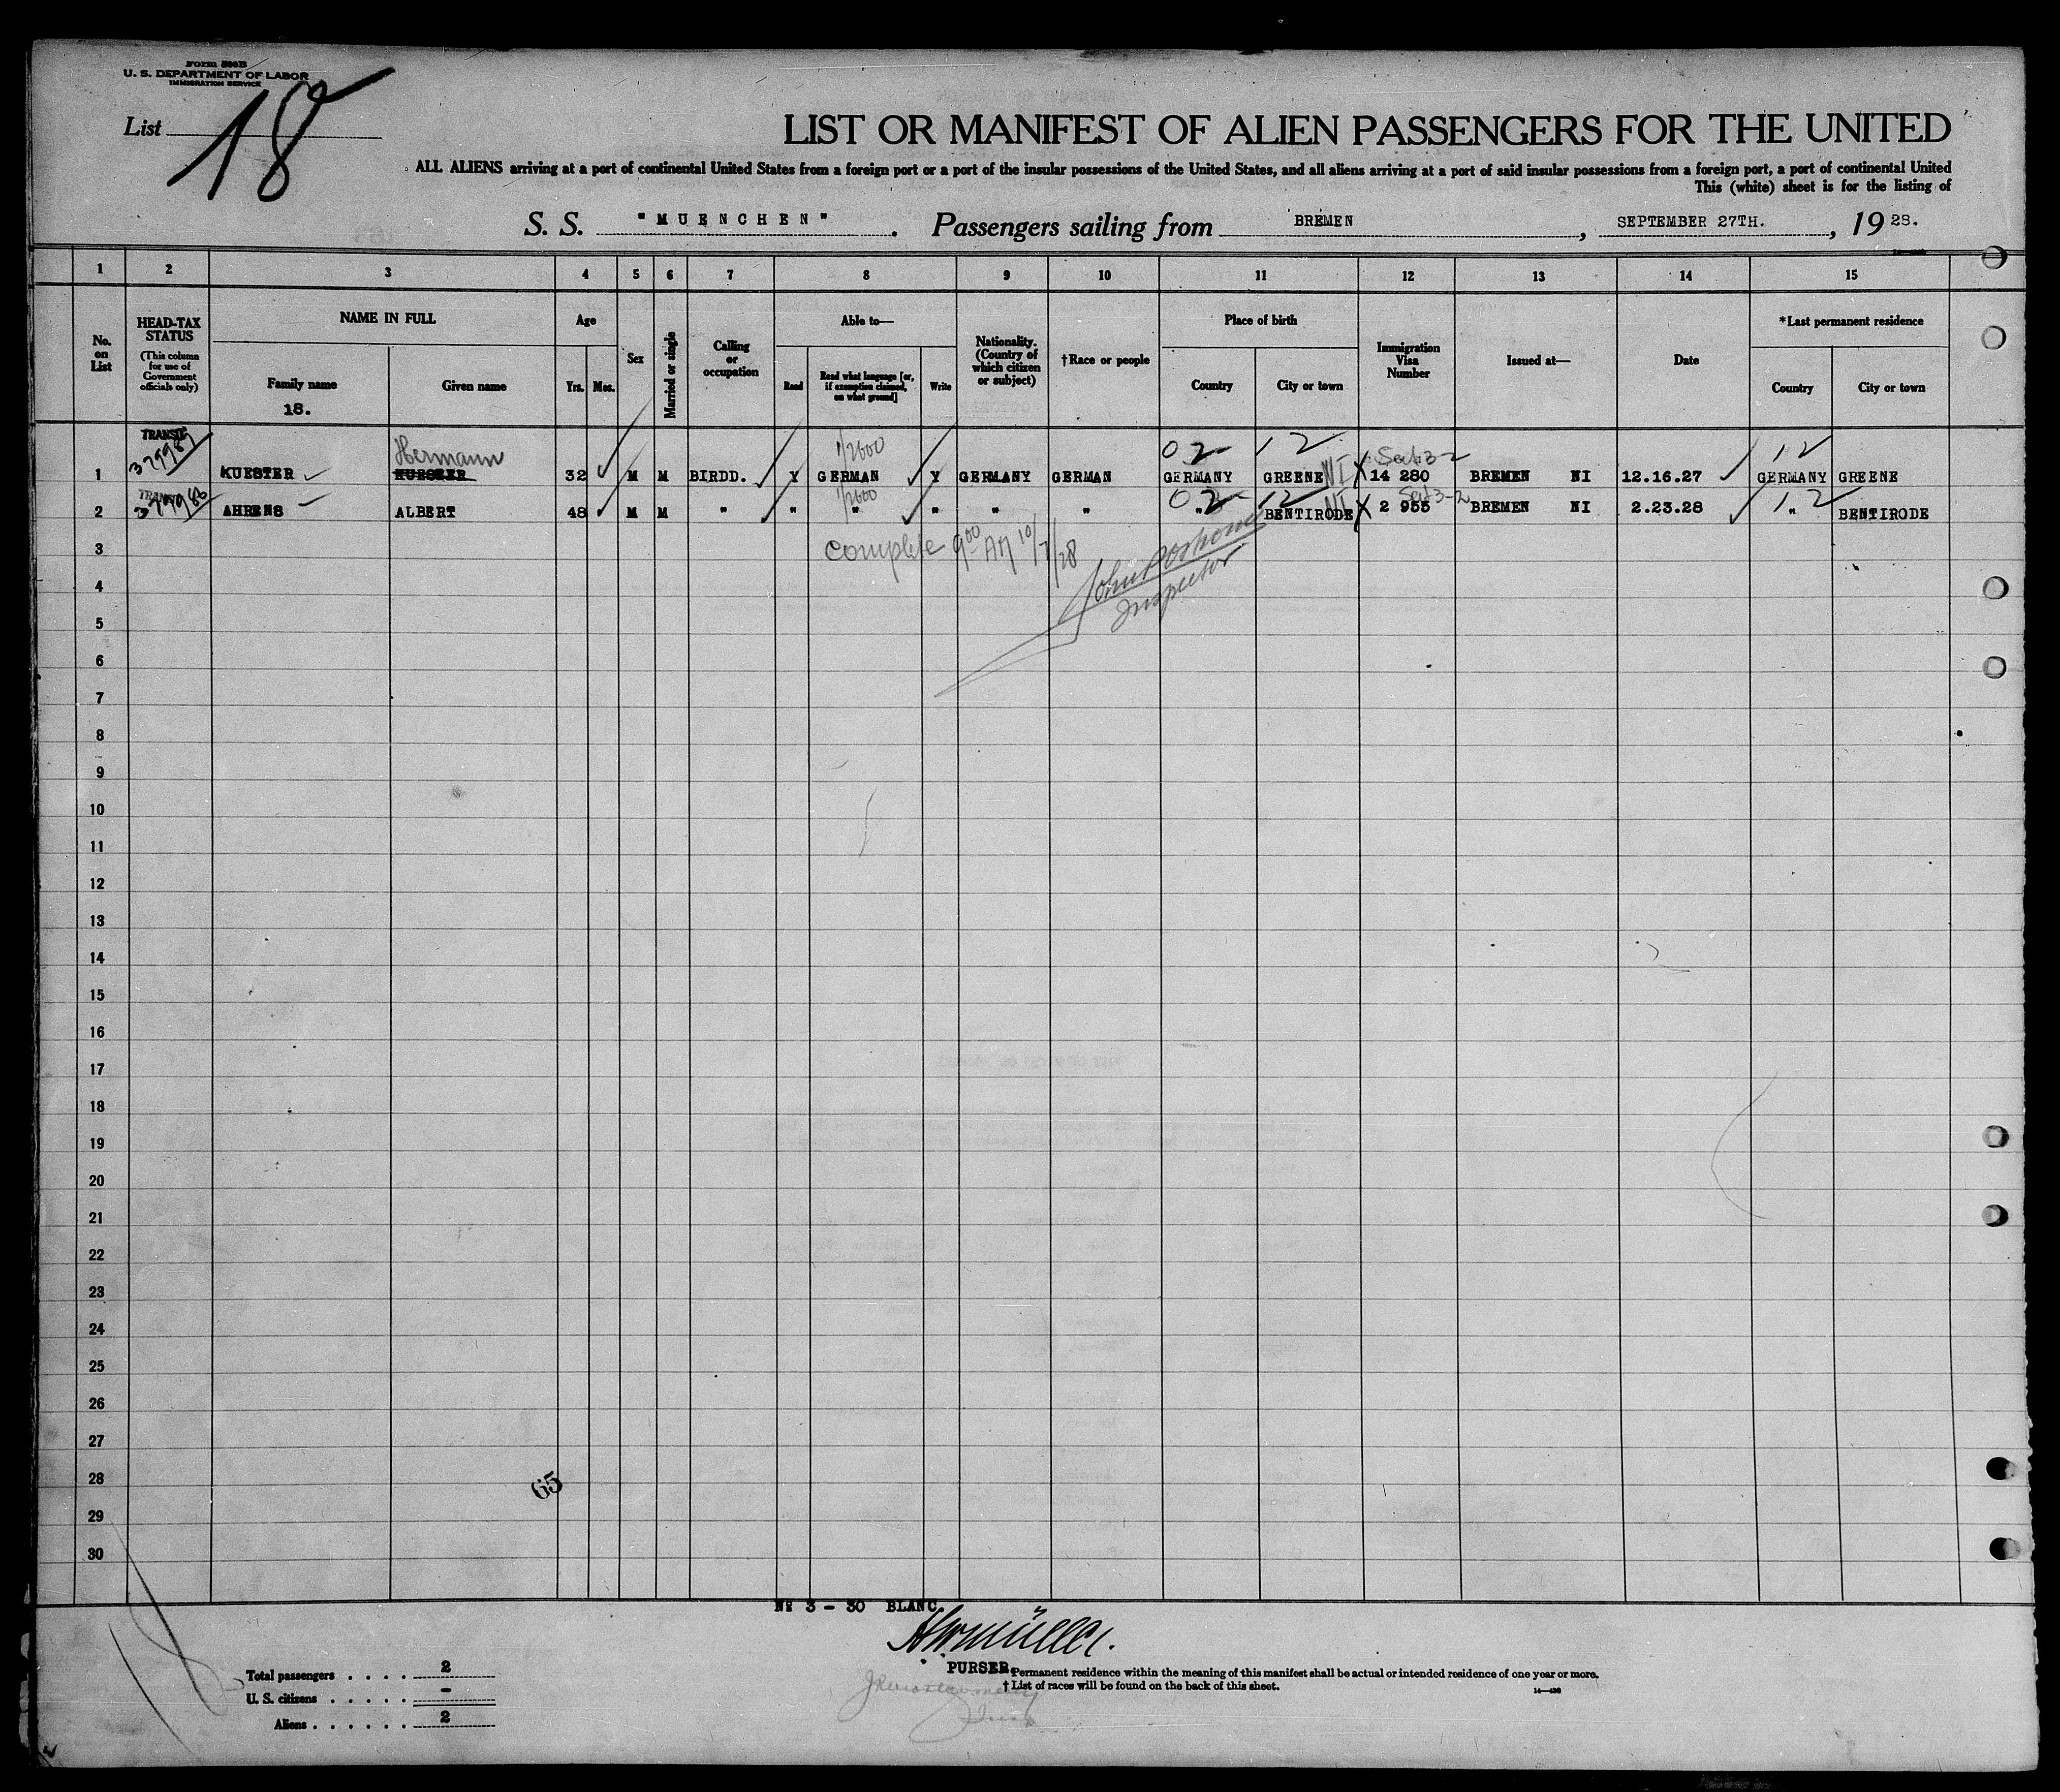 Form 500B
U. S. DEPARTMENT OF LABOR
IMMIGRATION SERVICE
List 18
LIST OR MANIFEST OF ALIEN PASSENGERS FOR THE UNITED
ALL ALIENS arriving at a port of continental United States from a foreign port or a port of the insular possessions of the United States, and all aliens arriving at a port of said insular possessions from a foreign port, a port of continental United
This (white) sheet is for the listing of
S. S. "MUENCHEN". Passengers sailing from BREMEN, SEPTEMBER 27TH., 1928.
1 2 3 4 5 6 7 8 9 10 11 12 13 14 15
No. on List
HEAD-TAX STATUS
(This column for use of Government officials only)
NAME IN FULL
Family name
18.
Given name
Age
Yrs. Mos.
Sex
Married or single
Calling or occupation
Able to—
Read
Read what language [or, if exemption claimed, on what ground]
Write
Nationality. (Country of which citizen or subject)
†Race or people
Place of birth
Country
City or town
Immigration Visa Number
Issued at—
Date
*Last permanent residence
Country
City or town
TRANSIT
Hermann 1/2600 02 12 Sect 3-2 12
1 KUESTER KUESTER 32 M M BIRDD. Y GERMAN Y GERMANY GERMAN GERMANY GREENE NI 14 280 BREMEN NI 12.16.27 GERMANY GREENE
TRANSIT 1/2600 02 12 Sect 3-2 12
2 AHRENS ALBERT 48 M M " " " " " " " BENTIRODE NI 2 955 BREMEN NI 2.23.28 " BENTIRODE
3
Complete 9 00 AM 10/7/28
4
Inspector
5
6
7
8
9
10
11
12
13
14
15
16
17
18
19
20
21
22
23
24
25
26
27
28
65
29
30
Nº 3 - 30 BLANC.
PURSER.
*Permanent residence within the meaning of this manifest shall be actual or intended residence of one year or more.
† List of races will be found on the back of this sheet.
Total passengers . . . . 2
U. S. citizens . . . . . -
Aliens . . . . . . 2